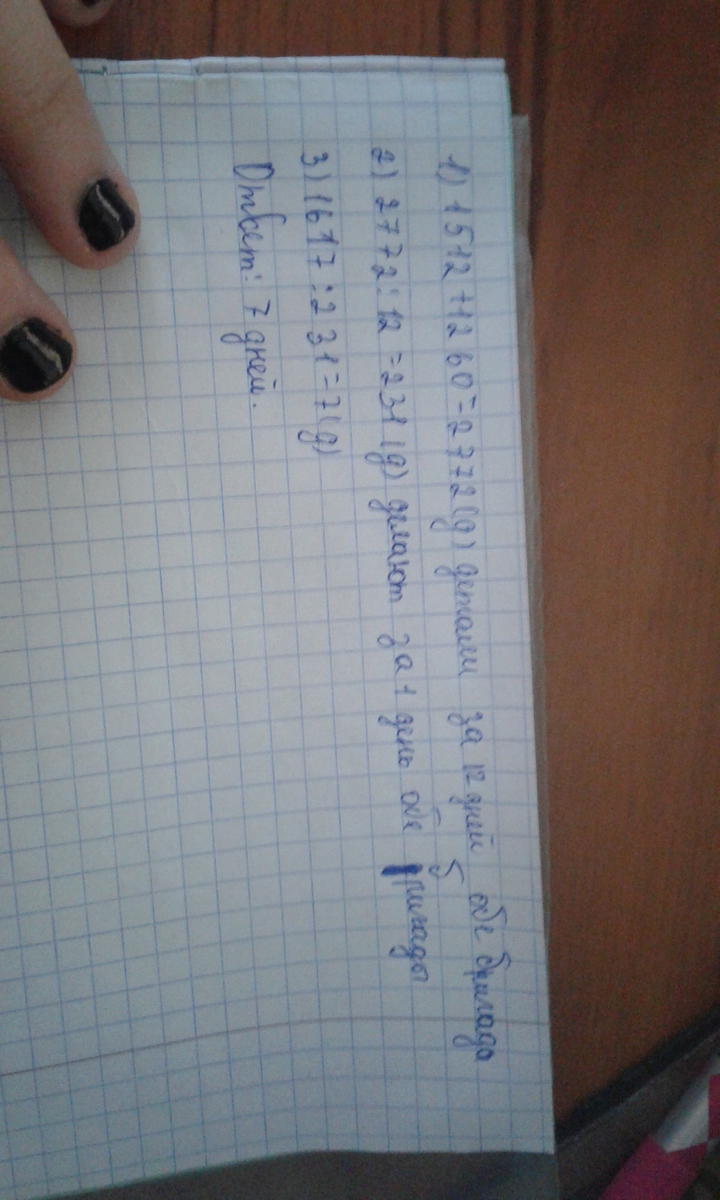 1) 1512 + 1260 = 2772 (д) детали за 12 дней обе бригады
2) 2772 : 12 = 231 (д) делают за 1 день обе бригады
3) 1617 : 231 = 7 (д)
Ответ: 7 дней.